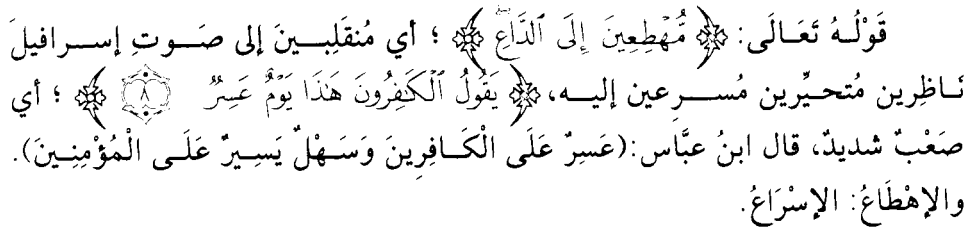 قَوْلُهُ تَعَالَى: ﴿ مُّهْطِعِينَ إِلَى ٱلدَّاعِۖ ﴾ ؛ أي مُنقَلِبِينَ إلى صَوتِ إسرافيلَ
نَاظِرين مُتحيِّرين مُسرِعين إليه، ﴿ يَقُولُ ٱلْكَٰفِرُونَ هَٰذَا يَوْمٌ عَسِرٌ ٨ ﴾ ؛ أي
صَعْبٌ شديدٌ، قال ابنُ عبَّاس: (عَسِرٌ عَلَى الْكَافِرِينَ وَسَهْلٌ يَسِيرٌ عَلَى الْمُؤْمِنِينَ).
والإهْطَاعُ: الإسْرَاعُ.